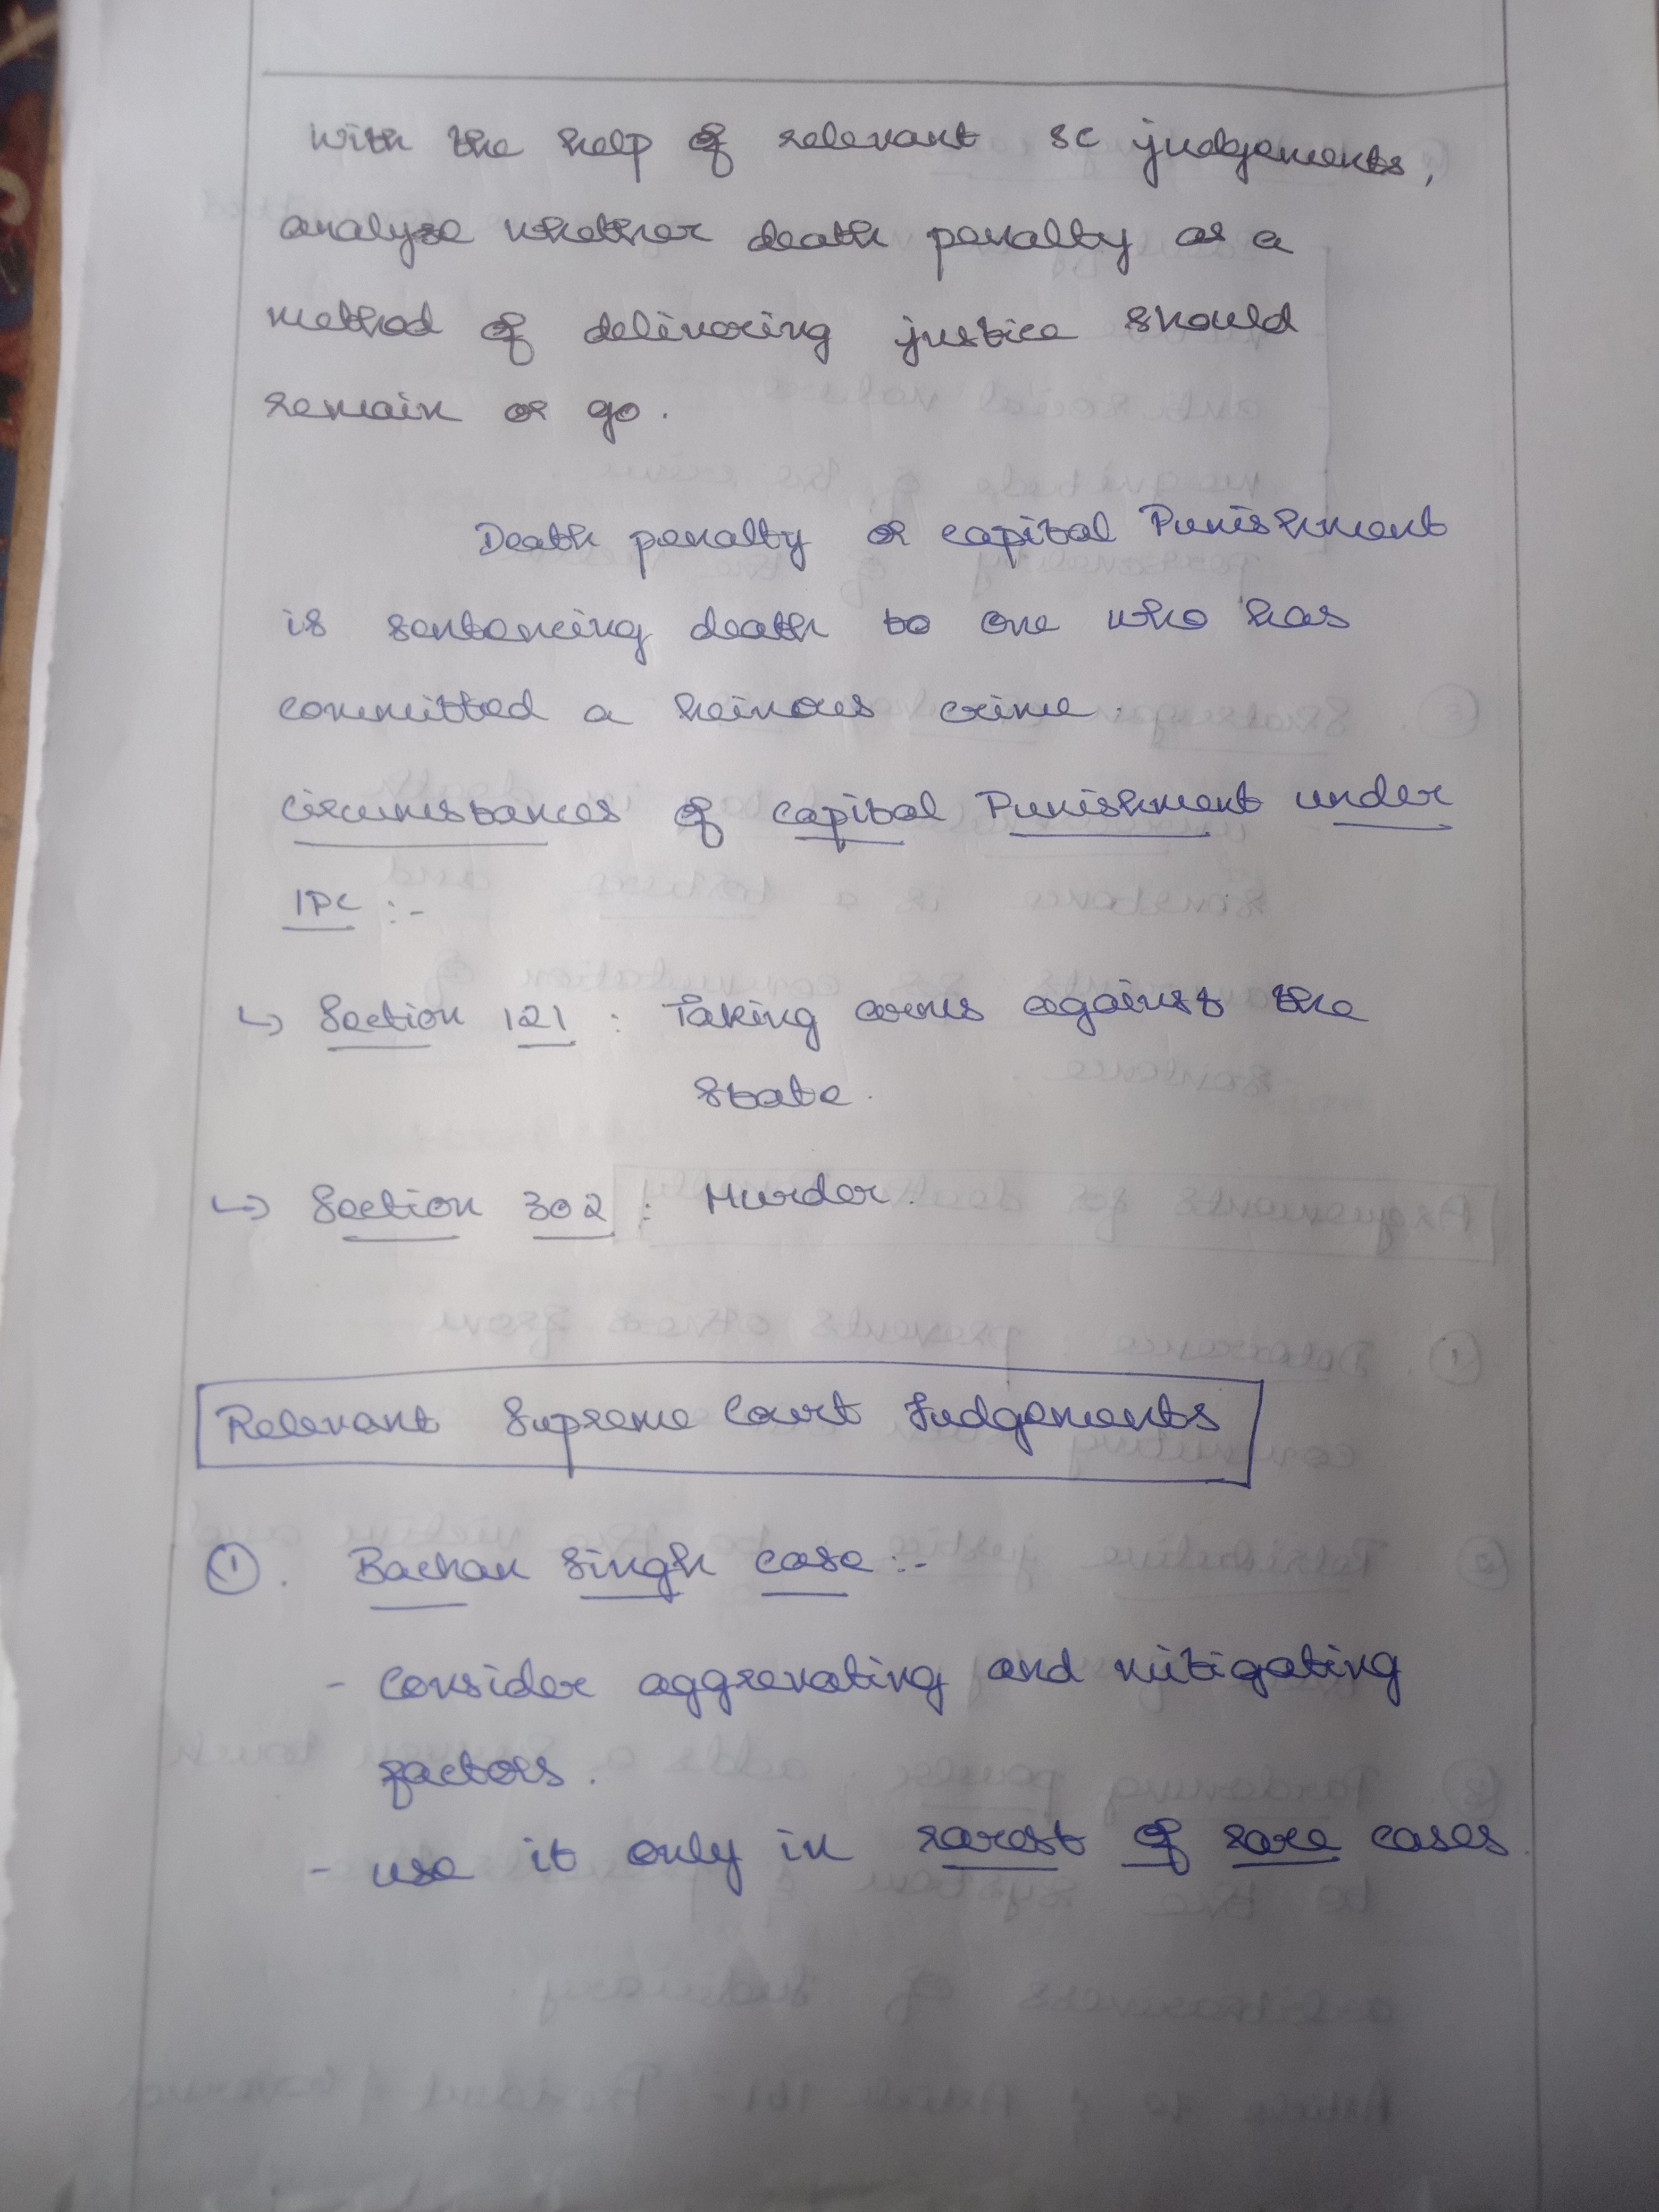 With the help of relevant SC judgements,
analyse whether death penalty as a
method of delivering justice should
remain or go.
Death penalty or capital Punishment
is sentencing death to one who has
committed a heinous crime.
Circumstances of capital Punishment under
IPC :-
↳ Section 121 : Taking arms against the
state.
↳ Section 302 : Murder.
Relevant Supreme Court Judgements
①. Bachan Singh case :-
- Consider aggrevating and mitigating
factors.
- use it only in rarest of rare cases.